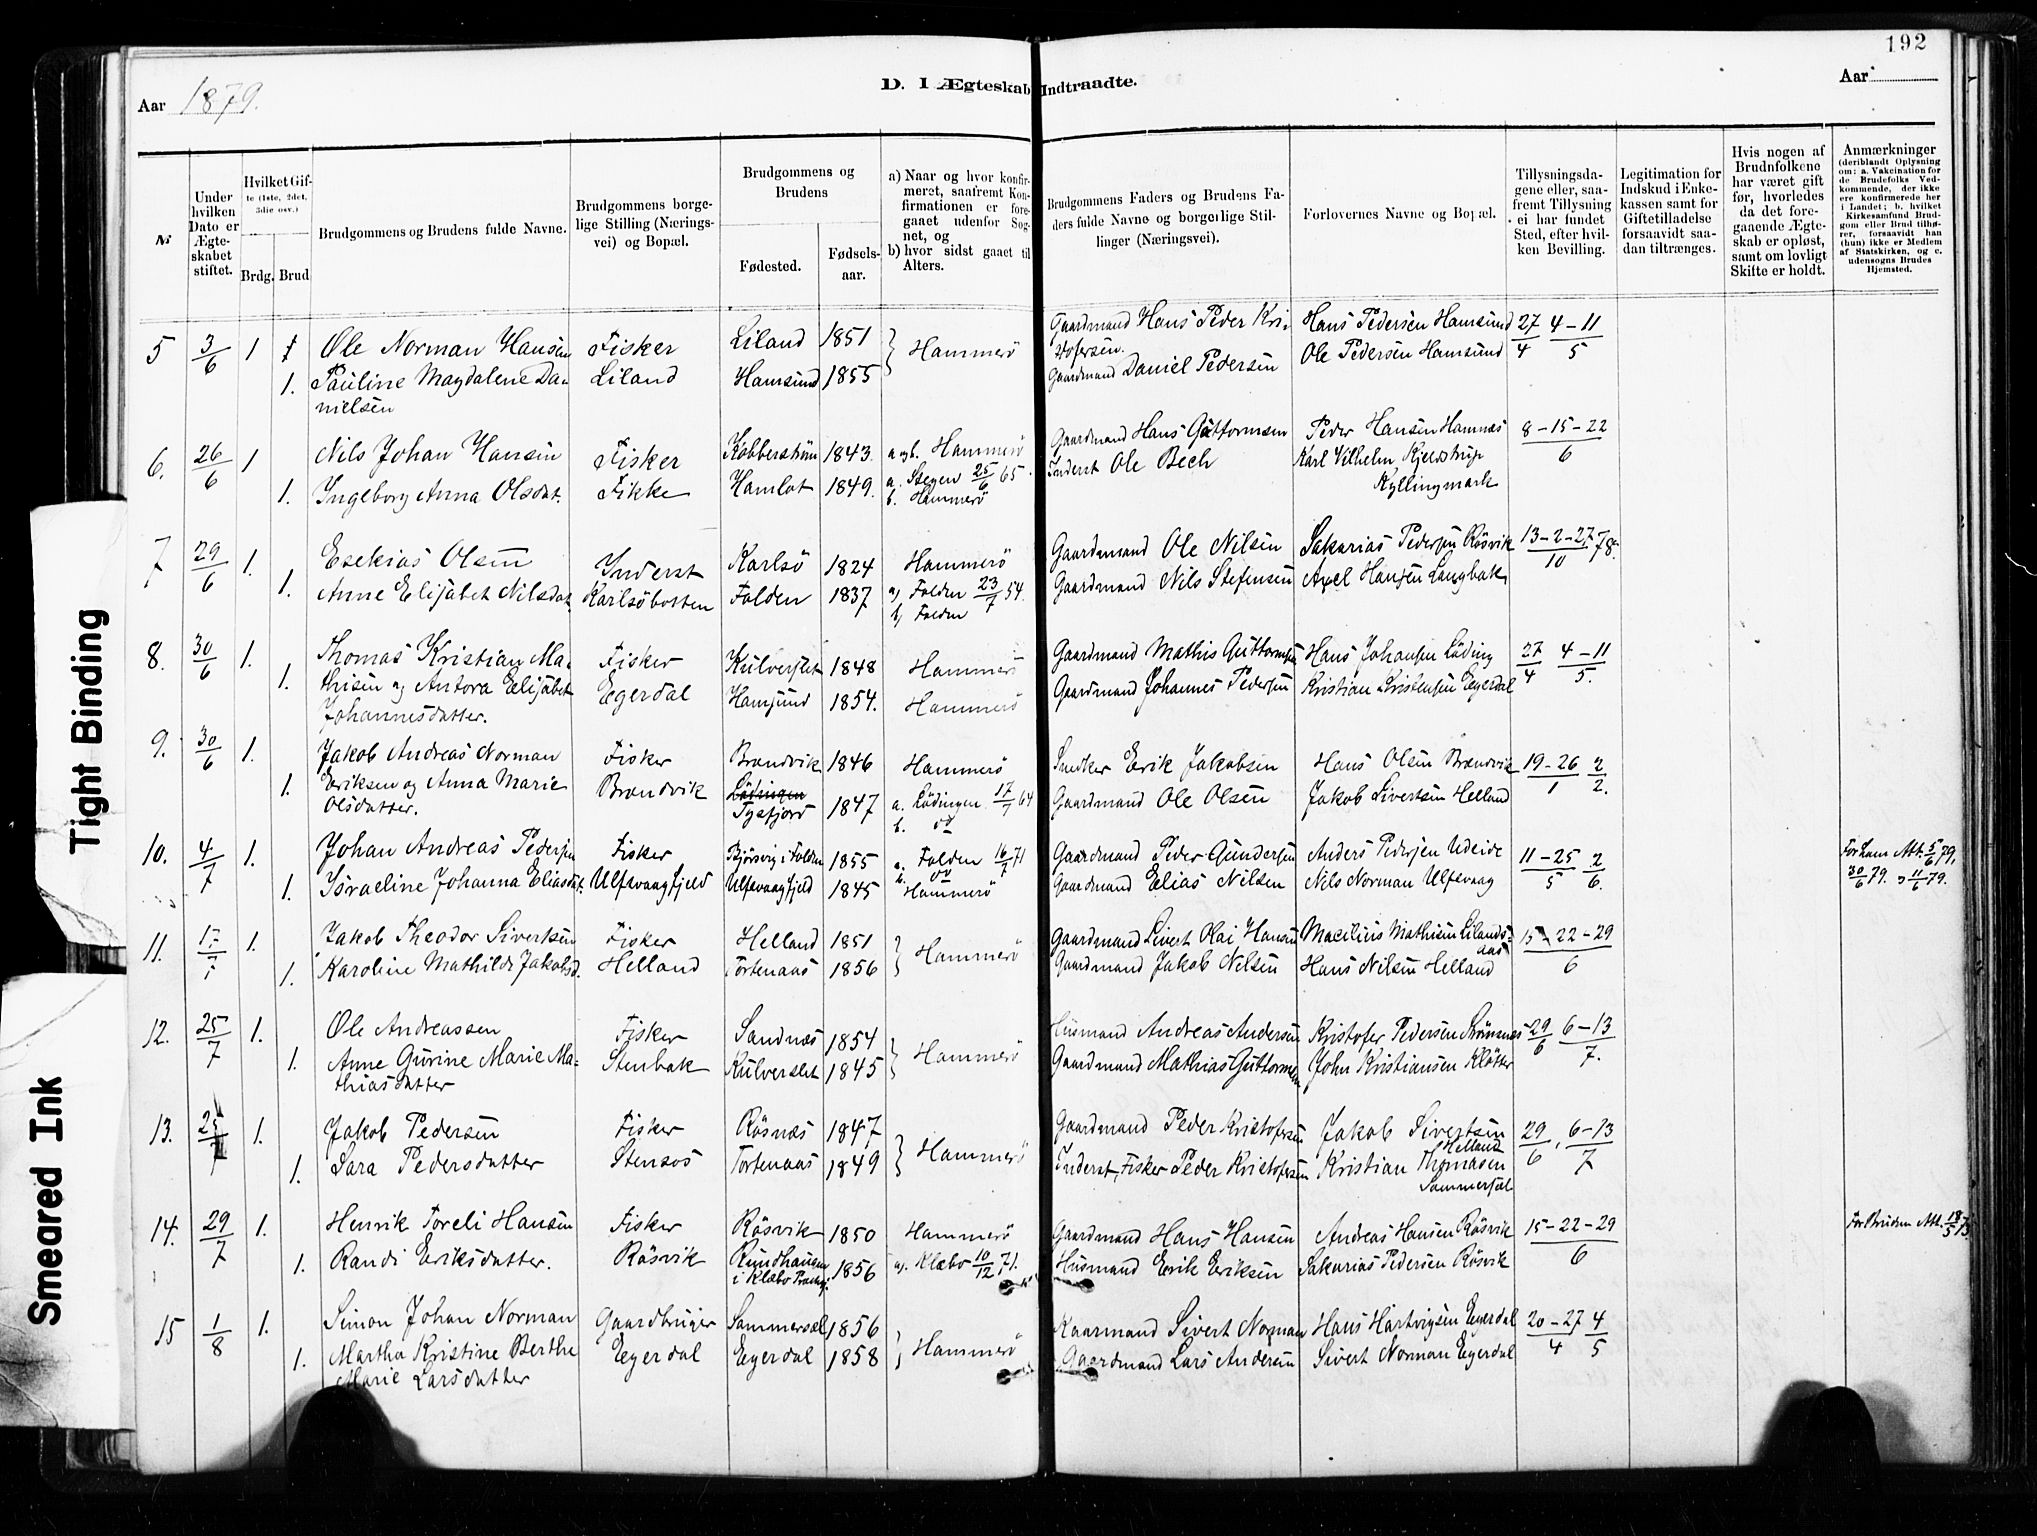 192
D. I Ægteskab Indtraadte.
Aar 1879.
Aar
No
Under hvilken Dato er Ægteskabet stiftet.
Hvilket Gifte (1ste, 2det, 3die osv.)
Brdg. Brud
Brudgommens og Brudens fulde Navne.
Brudgommens borgelige Stilling (Næringsvei) og Bopæl.
Brudgommens og Brudens
Fødested.
Fødselsaar.
a) Naar og hvor konfirmeret, saafremt Konfirmationen er foregaaet udenfor Sognet, og
b) hvor sidst gaaet til Alters.
Brudgommens Faders og Brudens Faders fulde Navne og borgerlige Stillinger (Næringsvei).
Forlovernes Navne og Bopæl.
Tillysningsdagene eller, saafremt Tillysning ei har fundet Sted, efter hvilken Bevilling.
Legitimation for Indskud i Enkekassen samt for Giftetilladelse forsaavidt saadan tiltrænges.
Hvis nogen af Brudnfolkene har været gift før, hvorledes da det foregaaende Ægteskab er opløst, samt om lovligt Skifte er holdt.
Anmærkninger
(deriblandt Oplysning om: a. Vakcination for de Brudefolks Vedkommende, der ikke ere konfirmerede her i Landet; b. hvilket Kirkesamfund Brudgom eller Brud tilhører, forsaavidt han (hun) ikke er Medlem af Statskirken, og c. udensogns Brudes Hjemsted.
5 3/6 1 Ole Norman Hansen Fisker Liland 1851 Hammerö Gaardmand Hans Peder Kristofersen Hans Pedersen Hamsund 27/4 4-11/5
1. Pauline Magdalene Danielsen Liland Hamsund 1855 Gaardmand Daniel Pedersen Ole Pedersen Hamsund
6. 26/6 1 Nils Johan Hansen Fisker Kobberström 1843. a og b. Hammerö Gaardmand Hans Guttormsen Peder Hansen Hamnæs 8-15-22/6
1. Ingeborg Anna Olsdat. Fikke Hamlot 1849. a. Stegen 25/6 65. b. Hammerö Inderst Ole Bech Karl Vilhelm Kjeldstrup Kyllingmark
7 29/6 1. Esekias Olsen Inderst Karlsö 1824 Hammerö Gaardmand Ole Nilsen Sakarias Pedersen Rösvik 13-2-27/10 78.
1. Anne Elisabet Nilsdat. Karlsöbotten Folden 1837 a) Folden 23/7 54 b) Folden Gaardmand Nils Stefensen Axel Hansen Langbak
8. 30/6 1. Thomas Kristian Ma- Fisker Kulverslet 1848 Hammerö Gaardmand Mathis Guttormsen Hans Johansen Löding 27/4 4-11/5.
1. thisen og Antora Elisabet Johannesdatter. Egerdal Hamsund 1854. Hammerö Gaardmand Johannes Pedersen Kristian Kristensen Egerdal
9. 30/6 1. Jakob Andreas Norman Fisker Brandvik 1846 Hammerö Snedker Erik Jakobsen Hans Olsen Brændvik 19-26/1 2/2.
1. Eriksen og Anna Marie Olsdatter. Brandvik Lödingen Tysfjord 1847 a. Lödingen 17/7 64 b. do Gaardmand Ole Olsen Jakob Sivertsen Helland
10. 4/7 1. Johan Andreas Pedersen Fisker Bjørsvig i Folden 1855 a. Folden 16/7 71 b. do Gaardmand Peder Gundersen Anders Pedersen Udeide 11-25/5 2/6. For ham Att. 5/6 79,
1. Israeline Johanna Eliasdat. Ulfsvaagfjeld Ulfsvaagfjeld 1845 Hammerö Gaardmand Elias Nilsen Nils Norman Ulfsvaag 30/6 79. 11/6 79.
11. 17/7 1. Jakob Theodor Sivertsen Fisker Helland 1851 Hammerö Gaardmand Sivert Olai Hansen Macilius Mathisen Lilandsaas 15-22-29/6
1. Karoline Mathilde Jakobsd. Helland Tortenaas 1856 Gaardmand Jakob Nilsen Hans Nilsen Helland
12. 25/7 1. Ole Andreassen Fisker Sandnæs 1854 Hammerö Husmand Andreas Andersen Kristofer Pedersen Strömnæs 29/6 6-13/7.
1. Anne Gurine Marie Mathiasdatter Stenbak Kulverslet 1845 Gaardmand Mathias Guttormsen John Kristiansen Klötter
13. 25/7 1. Jakob Pedersen Fisker Rösnæs 1847 Hammerö Gaardmand Peder Kristofersen Jakob Sivertsen Helland 29/6, 6-13/7
1. Sara Pedersdatter Stensos Tortenaas 1849 Inderst, Fisker Peder Kristofersen Kristian Thomasen Sommersæl
14. 29/7 1. Henrik Toreli Hansen Fisker Rösvik 1850 Hammerö Gaardmand Hans Hansen Andreas Hansen Rösvik 15-22-29/6 For Bruden Att. 18/5 75
1. Randi Eriksdatter. Rösvik Rundhaugen i Klæbo Præstg. 1856 a). Klæbo 10/12 71. Husmand Erik Eriksen Sakarias Pedersen Rösvik
15 1/8 1. Simon Johan Norman Gaardbruger Sammersæl 1856 Hammerö Kaarmand Sivert Norman Hans Hartvigsen Egerdal 20-27/4 4/5
1. Martha Kristine Berthe Marie Larsdatter Egerdal Egerdal 1858 Gaardmand Lars Andersen Sivert Norman Egerdal
Tight Binding
Smeared Ink